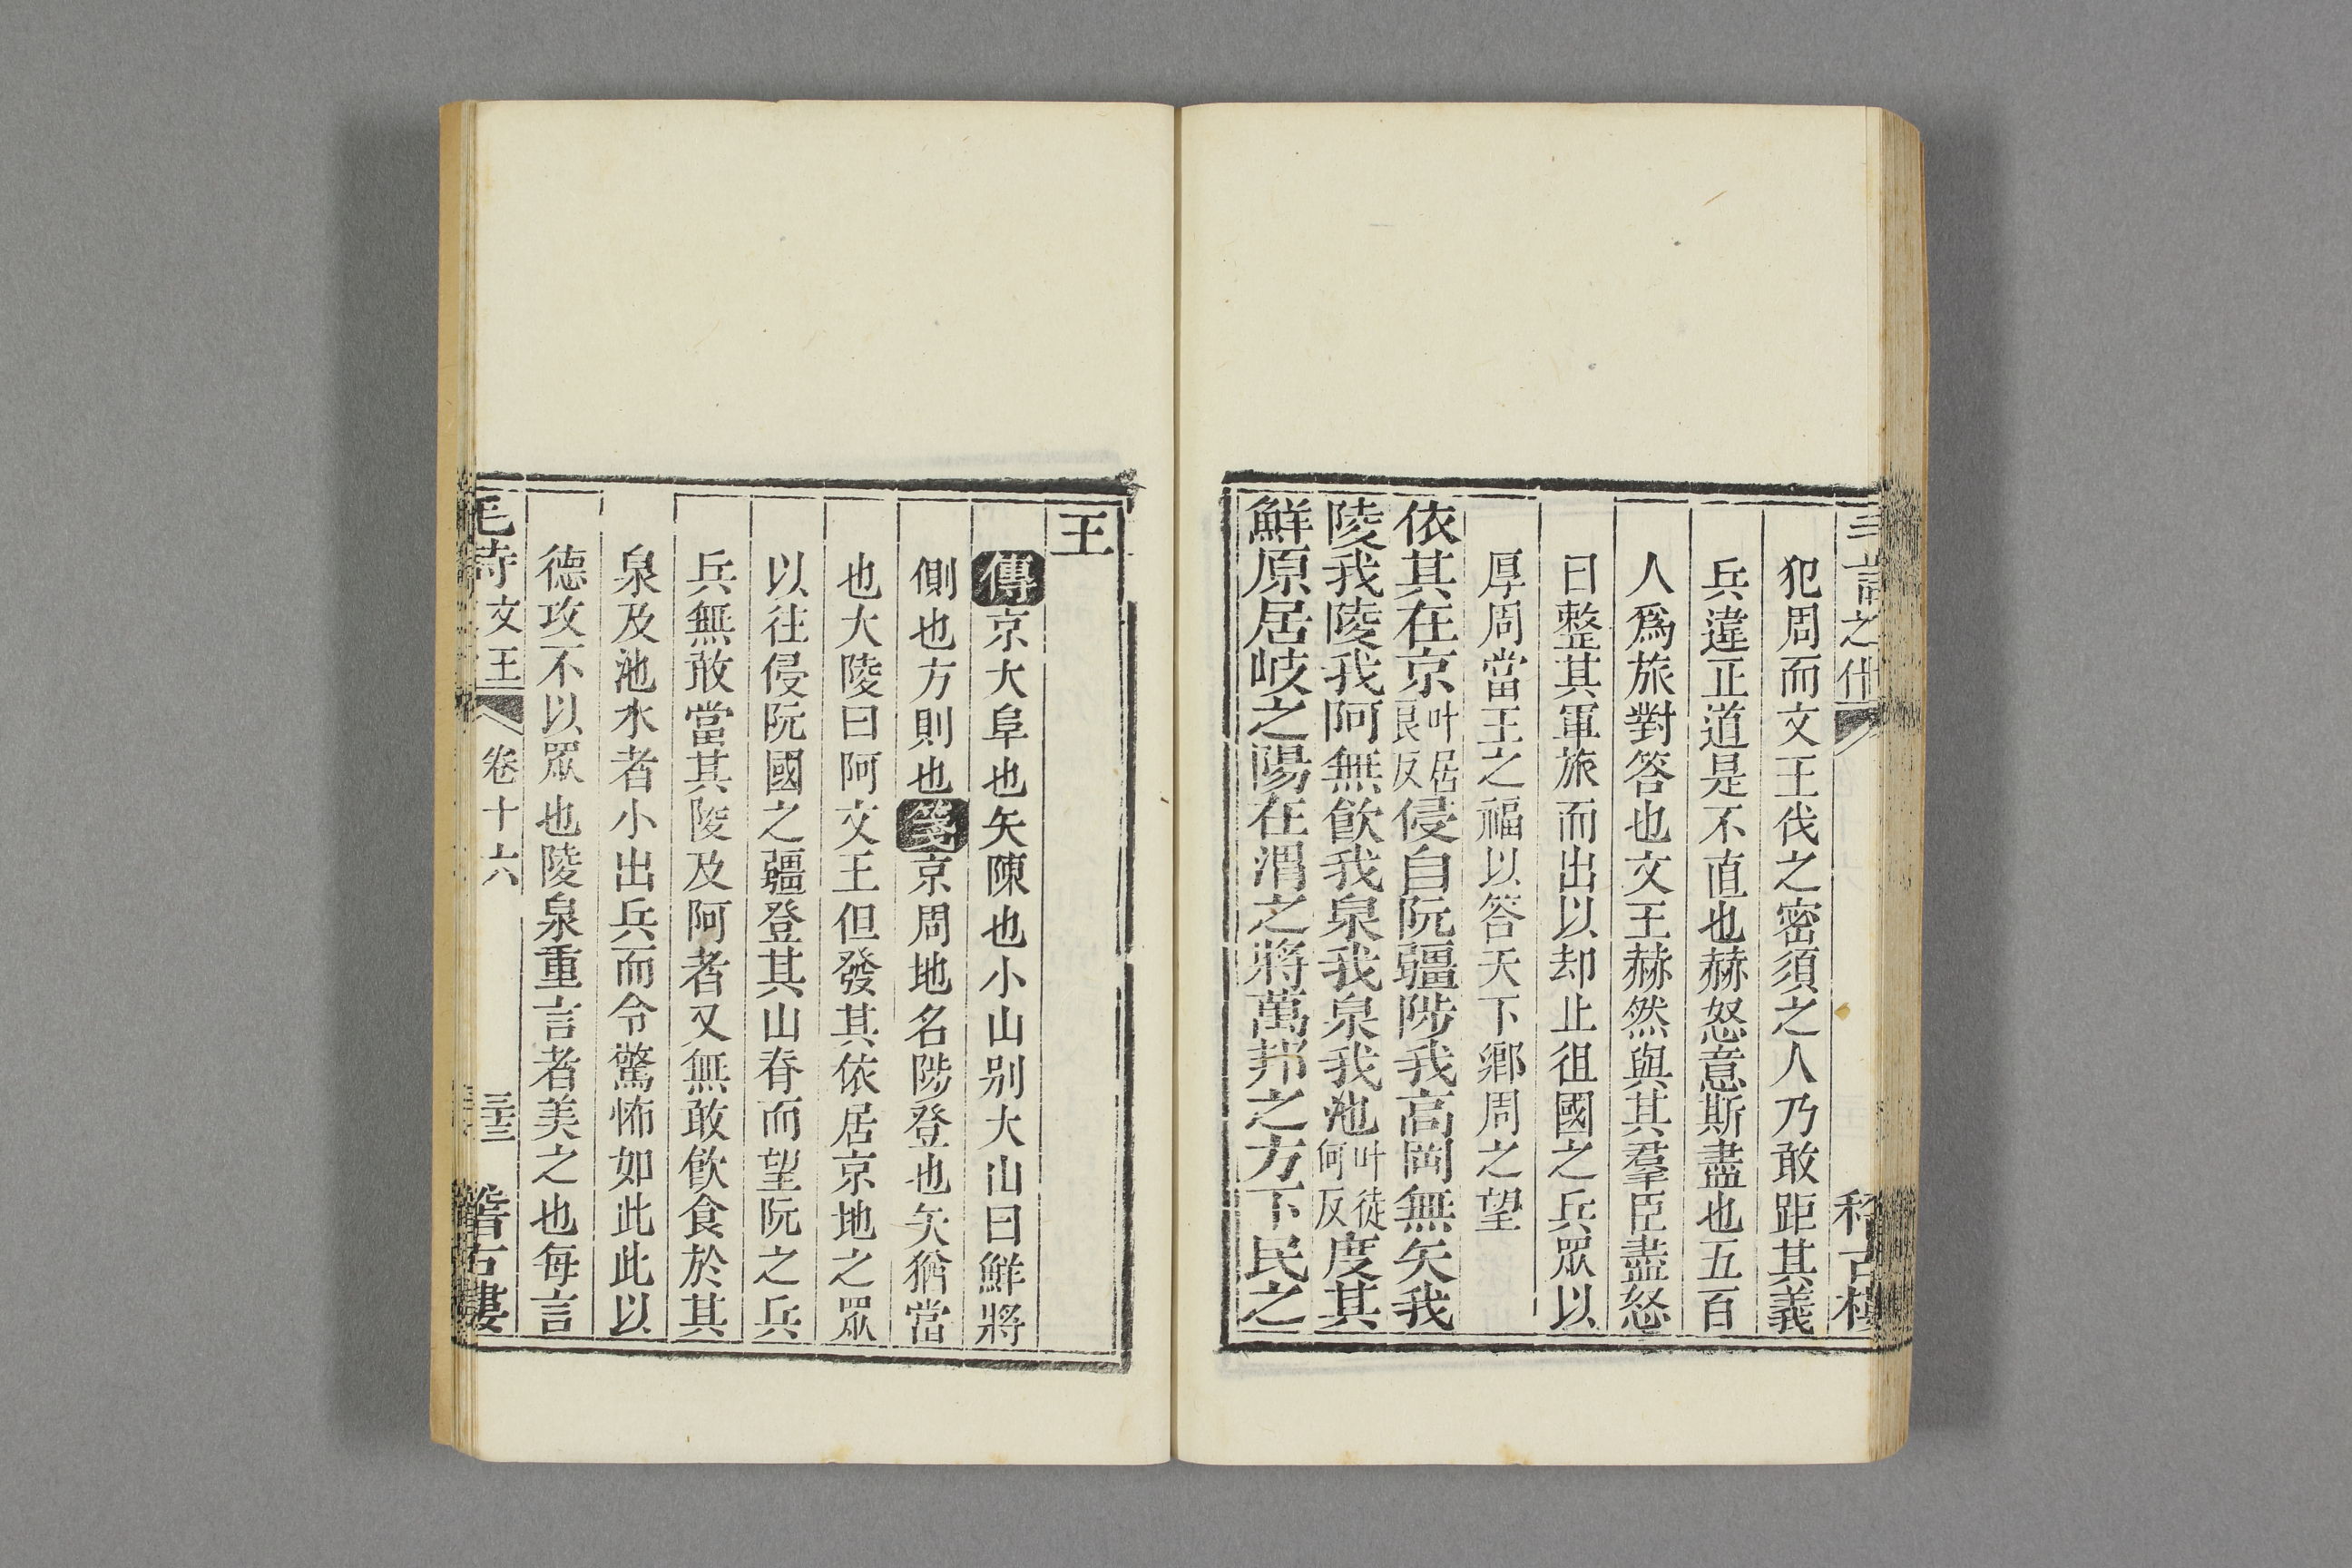 之什
稽古樓
犯周而文王伐之密須之人乃敢距其義
兵違正道是不直也赫怒意斯盡也五百
人爲旅對答也文王赫然與其羣臣盡怒
曰整其軍旅而出以却止徂國之兵眾以
厚周當王之福以答天下鄉周之望
依其在京叶居良反侵自阮疆陟我高岡無矢我
陵我陵我阿無飮我泉我泉我池叶徒何反度其
鮮原居岐之陽在渭之將萬邦之方下民之
王
傳京大阜也矢陳也小山别大山曰鮮將
側也方則也箋京周地名陟登也矢猶當
也大陵曰阿文王但發其依居京地之眾
以往侵阮國之疆登其山脊而望阮之兵
兵無敢當其陵及阿者又無敢飮食於其
泉及池水者小出兵而令驚怖如此此以
德攻不以眾也陵泉重言者美之也每言
毛詩文王 卷十六 三十三 稽古樓